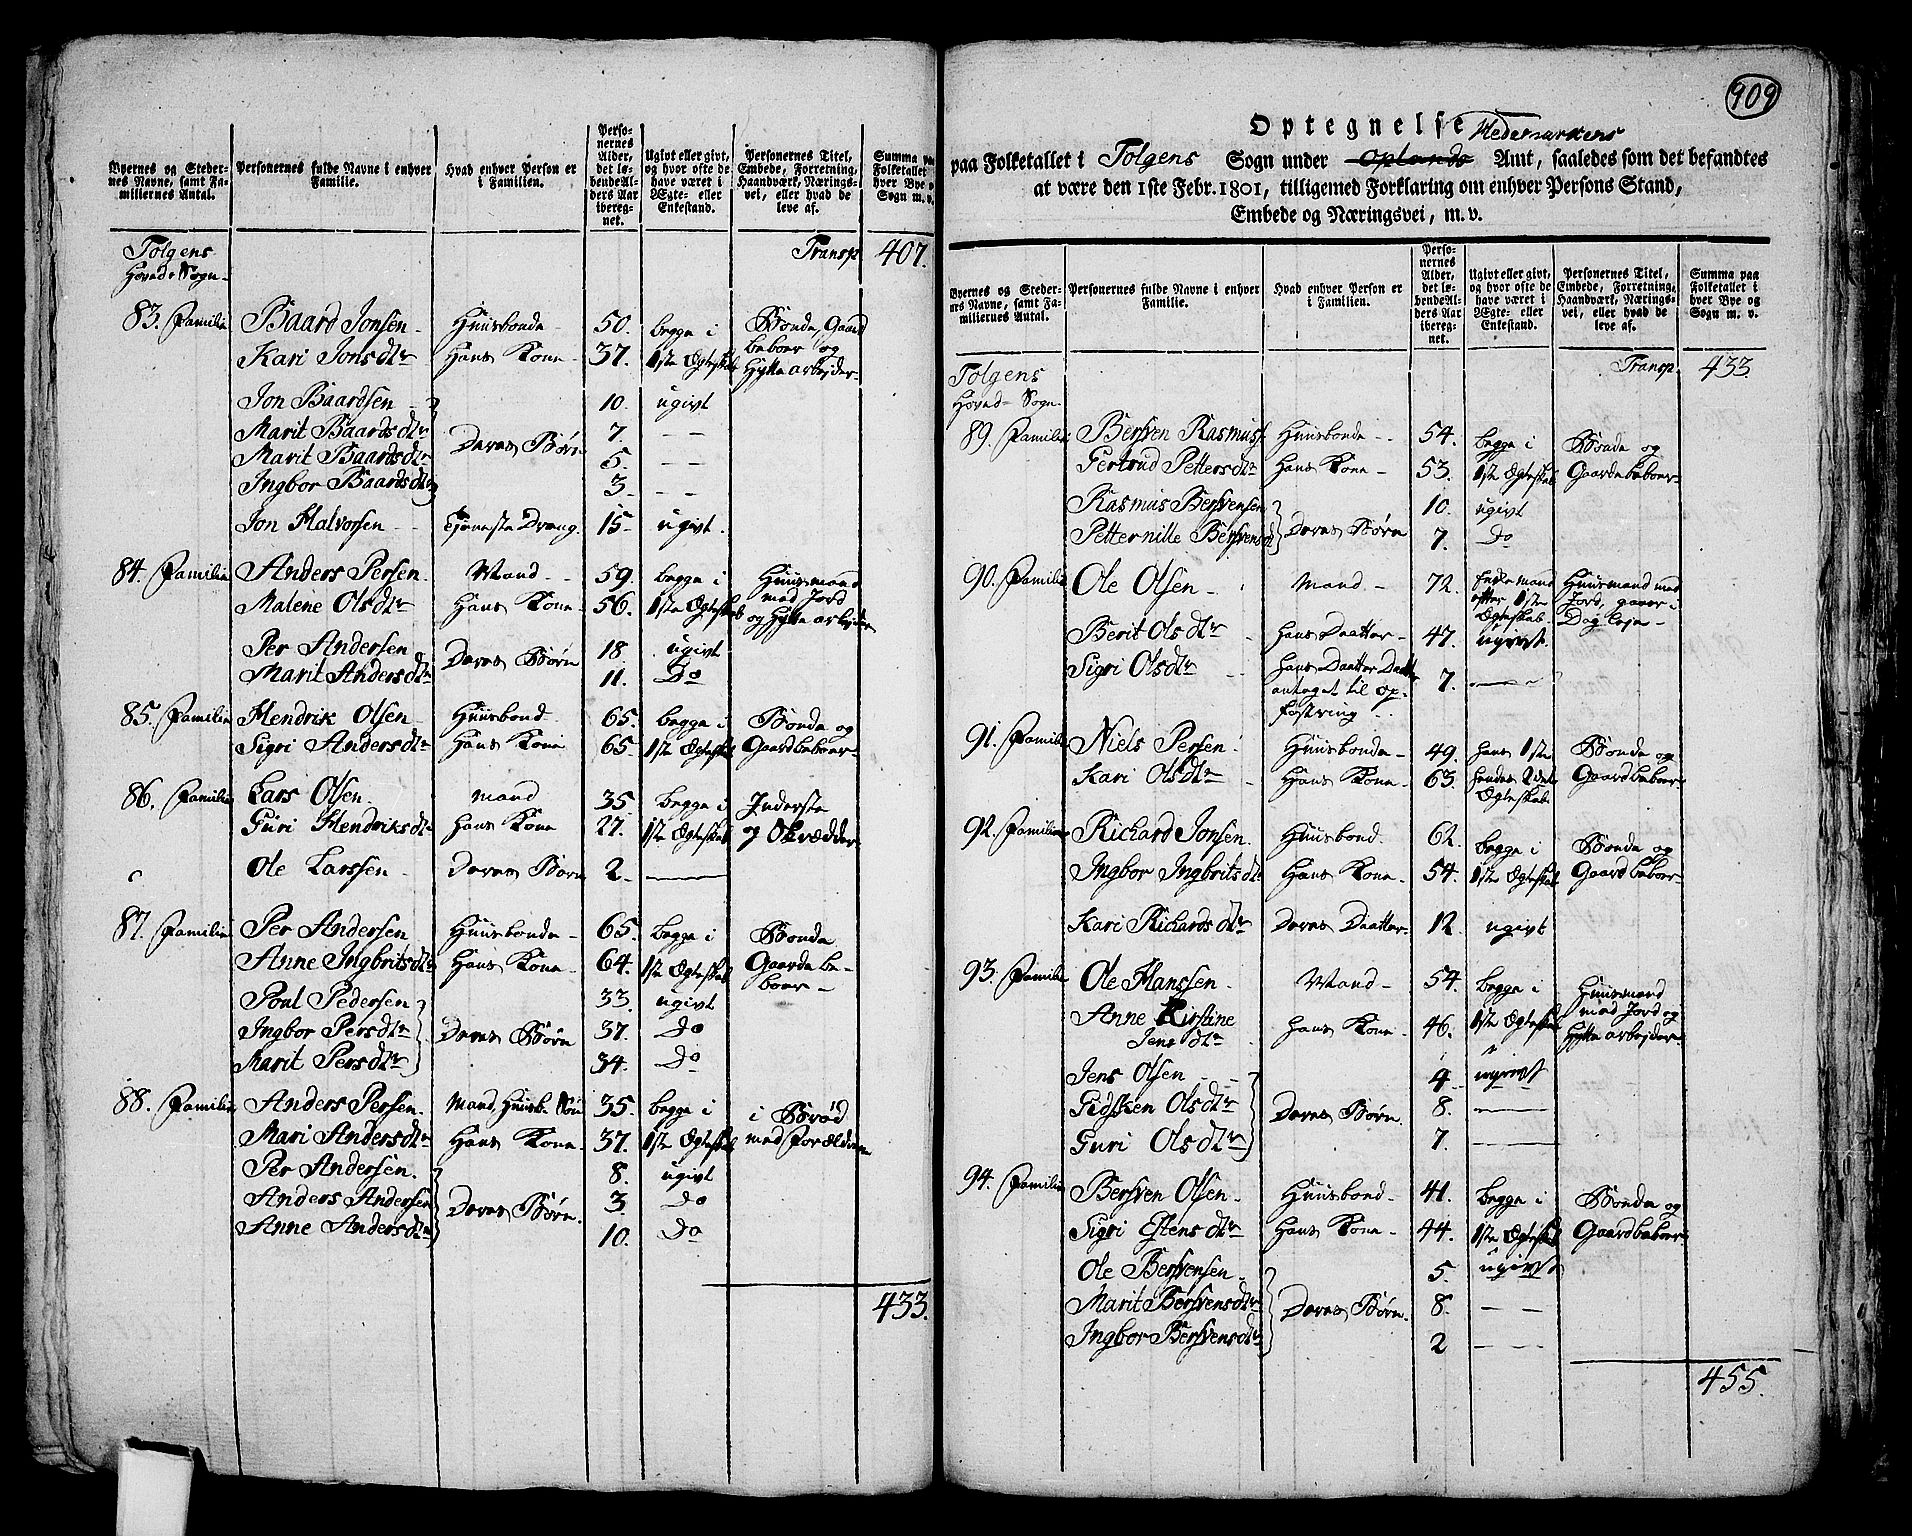 Byernes og Steder-
nes Navne, samt Fa-
miliernes Antal.
Personernes fulde Navne i enhver
Familie.
Hvad enhver Person er
i Familien.
Perso-
nernes
Alder,
det lø-
bende Al-
ders Aar
ibereg-
net.
Ugivt eller givt,
og hvor ofte de
have været i
Ægte- eller
Enkestand.
Personernes Titel,
Embede, Forretning,
Haandværk, Nærings-
vei, eller hvad de
leve af.
Summa paa
Folketallet i
hver Bye og
Sogn m. v.
Tolgens Transp 407.
Hoved-Sogn-
83. Familie Baard Jonsen Huusbonde 50. begge i Bonde, Gaard
Kari Jonsdtr Hans Kone 37. 1ste Ægteskab beboer og
Hytte arbejder
Jon Baardsen 10. ugivt
Marit Baardsdtr 7. —
Deres Børn
Marit Baardsdtr 5. —
Ingbor Baardsdtr 3. —
Jon Halvorsen Tjeneste Dreng. 15. ugivt.
84. Familie Anders Persen Mand 59. begge i Huusmand
Malene Olsdtr Hans Kone 56. 1ste Ægteskab med Jord
og Hytte arbejder
Per Andersen 18. ugivt
Deres Børn
Marit Andersdtr 11. Do
85. Familie Hendrik Olsen Huusbond 65. begge i Bonde og
Sigri Andersdtr Hans Kone 65. 1ste Ægteskab Gaardbeboer
86. Familie Lars Olsen mand 35 begge i Inderste
Guri Hendriksdtr Hans Kone 27. 1ste Ægteskab og
Ole Larssen Deres Børn 2. —
87. Familie Per Andersen Huusbonde 65. begge i Bonde
Anne Ingbritsdtr Hans Kone 64. 1ste Ægteskab Gaardebe-
boer
Poul Pedersen 33. ugivt
Ingbor Persdtr Deres Børn 37. Do
Marit Persdtr 34. Do
88. Familie Anders Persen Mand, Huusb. Søn 35. begge i i Brød
Mari Andersdtr Hans Kone 37. 1ste Ægteskab med Forældrene
Per Andersen 8. ugivt
Anders Andersen Deres Børn. 3. Do
Anne Andersdtr 10. Do
433.
909
Optegnelse
Hedemarkens
paa Folketallet i Tolgens Sogn under Oplands Amt, saaledes som det befandtes
at være den 1ste Febr. 1801, tilligemed Forklaring om enhver Persons Stand,
Embede og Næringsvei, m. v.
Byernes og Steder-
nes Navne, samt Fa-
miliernes Antal.
Personernes fulde Navne i enhver
Familie.
Hvad enhver Person er
i Familien.
Perso-
nernes
Alder,
det lø-
bende Al-
ders Aar
ibereg-
net.
Ugivt eller givt,
og hvor ofte de
have været i
Ægte- eller
Enkestand.
Personernes Titel,
Embede, Forretning,
Haandværk, Nærings-
vei, eller hvad de
leve af.
Summa paa
Folketallet i
hver Bye og
Sogn m. v.
Tolgens Transp. 433.
Hoved-Sogn
89. Familie Bersven Rasmuss. Huusbonde 54. begge i Bonde og
Gertrud Pettersdtr Hans Kone 53. 1ste Ægteskab Gaardebeboer
Rasmus Bersvensen 10. ugivt
Deres Børn
Petternille Bersvensd 7. Do
90. Familie Ole Olsen mand 72. Enkemand Huusmand med
efter 1ste Jord, gaaer i
Ægteskab Dag leje
Berit Olsdtr hans Daatter 47. ugivt.
Sigri Olsdtr hans Daatter Daatter 7. —
antaget til op-
fostring
91. Familie Niels Persen. Huusbonde 49. hans 1ste Bonde og
Kari Olsdtr Hans Kone 63. hendes 2det Gaardbeboer
Ægteskab
92. Familie Richard Jonsen Huusbond. 62. begge i Bonde og
Ingbor Ingbritsdt Hans Kone 54. 1ste Ægteskab Gaardbeboer
Kari Richardsdtr Deres Daatter 12. ugivt
93. Familie Ole Hanssen Mand 54. begge i Huusmand
Anne Kirstine Hans Kone 46. 1ste Ægteskab med Jord og
Jensdtr Hytte arbejder
Jens Olsen 4. ugivt
Gidsken Olsdtr Deres Børn 8. —
Guri Olsdtr 7. —
94. Familie Bersven Olsen Huusbond 41. begge i Bonde og
Sigri Estensdtr Hans Kone 44. 1ste Ægteskab Gaardbeboer
Ole Bersvensen 5. ugivt
Marit Bersvensdtr Deres Børn. 8. —
Ingbor Bersvensdtr 2 —
455.